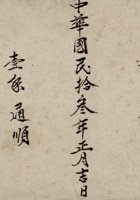 中華國民拾叁年正月吉日
壹家通順